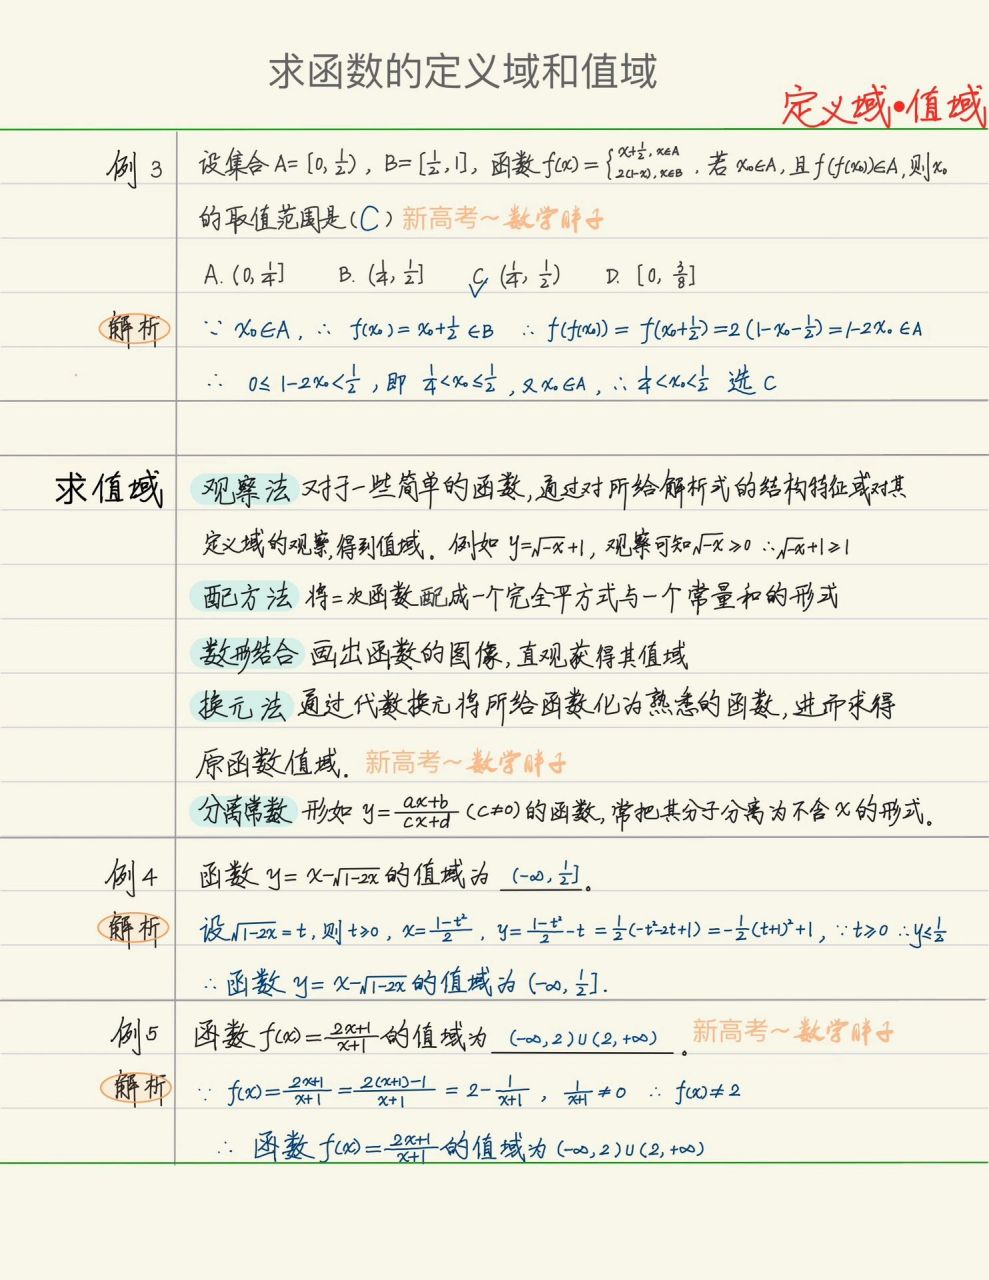 求函数的定义域和值域
定义域•值域
例3 设集合A=[0,½), B=[½,1], 函数f(x)={x+½, x∈A 2(1-x), x∈B . 若x₀∈A,且f(f(x₀))∈A,则x₀
的取值范围是(C) 新高考~数学胖子
A. (0,¼] B. (¼,½] C. (¼,½) D. [0,⅜]
解析 ∵ x₀∈A, ∴ f(x₀)=x₀+½∈B ∴ f(f(x₀))=f(x₀+½)=2(1-x₀-½)=1-2x₀∈A
∴ 0≤1-2x₀<½,即 ¼<x₀≤½,又x₀∈A,∴ ¼<x₀<½ 选C
求值域 观察法 对于一些简单的函数,通过对所给解析式的结构特征或对其
定义域的观察,得到值域. 例如 y=√-x+1, 观察可知√-x≥0 ∴√-x+1≥1
配方法 将二次函数配成一个完全平方式与一个常量和的形式
数形结合 画出函数的图像,直观获得其值域
换元法 通过代数换元将所给函数化为熟悉的函数,进而求得
原函数值域. 新高考~数学胖子
分离常数 形如 y=(ax+b)/(cx+d) (c≠0)的函数,常把其分子分离为不含x的形式。
例4 函数 y=x-√1-2x的值域为 (-∞,½]。
解析 设√1-2x=t,则t≥0, x=(1-t²)/2, y=(1-t²)/2-t=½(-t²-2t+1)=-½(t+1)²+1, ∵t≥0 ∴y≤½
∴函数 y=x-√1-2x的值域为(-∞,½].
例5 函数f(x)=(2x+1)/(x+1)的值域为 (-∞,2)∪(2,+∞) 。 新高考~数学胖子
解析 ∵ f(x)=(2x+1)/(x+1)=(2(x+1)-1)/(x+1)=2-1/(x+1), 1/(x+1)≠0 ∴ f(x)≠2
∴ 函数f(x)=(2x+1)/(x+1)的值域为(-∞,2)∪(2,+∞)